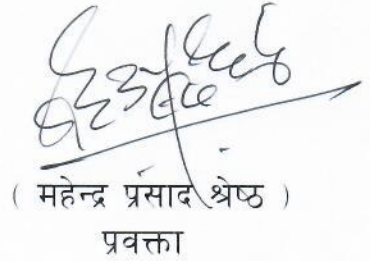 ( महेन्द्र प्रसाद श्रेष्ठ )
प्रवक्ता